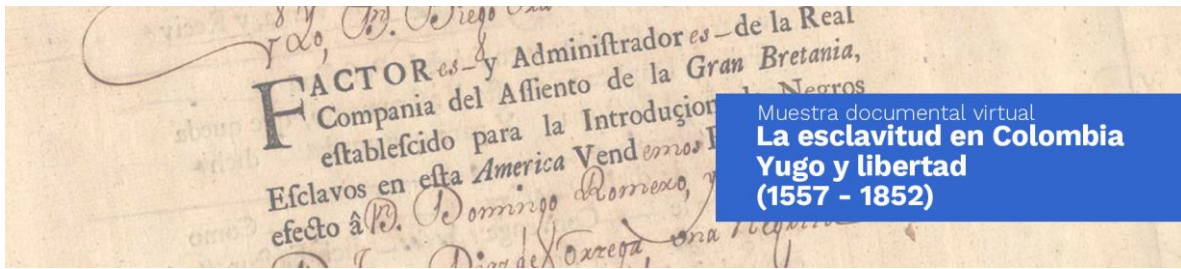 y Yo, Dn. Diego
FACTORes - y Adminiſtradores - de la Real
Compania del Aſſiento de la Gran Bretania,
eſtableſcido para la Introduçion Negros
Eſclavos en eſta America Vendemos
efecto â Dn. Domingo Romero, y
una
Muestra documental virtual
La esclavitud en Colombia
Yugo y libertad
(1557 - 1852)